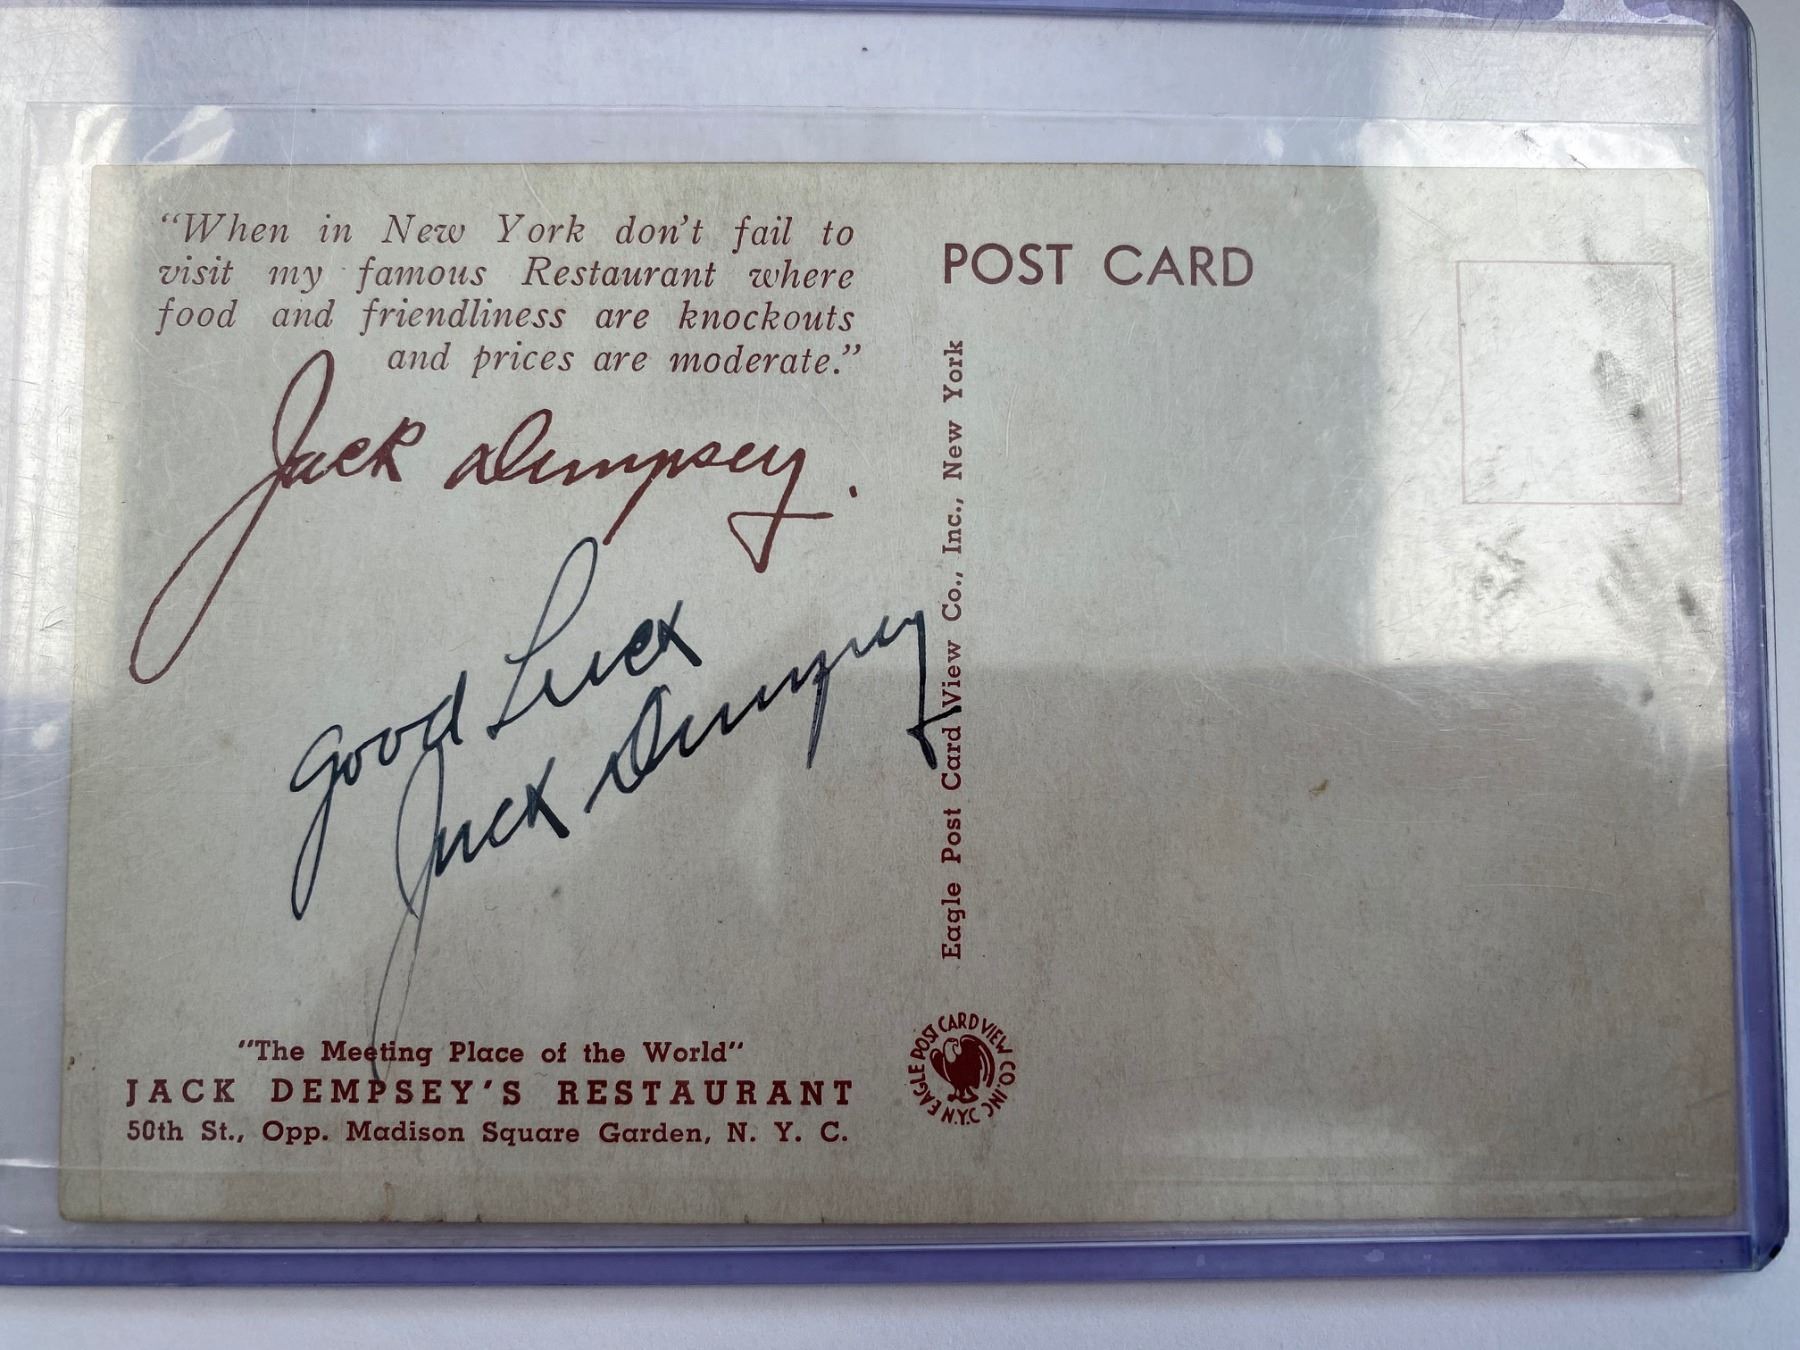 “When in New York don’t fail to
visit my famous Restaurant where
food and friendliness are knockouts
and prices are moderate.”
Jack Dempsey.
Good Luck
Jack Dempsey
"The Meeting Place of the World"
JACK DEMPSEY'S RESTAURANT
50th St., Opp. Madison Square Garden, N. Y. C.
POST CARD
Eagle Post Card View Co., Inc., New York
EAGLE POST CARD VIEW CO. INC. N.Y.C.